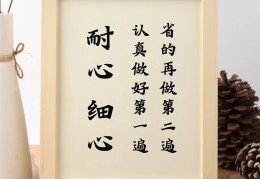 耐心 细心
认真做好第一遍
省的再做第二遍